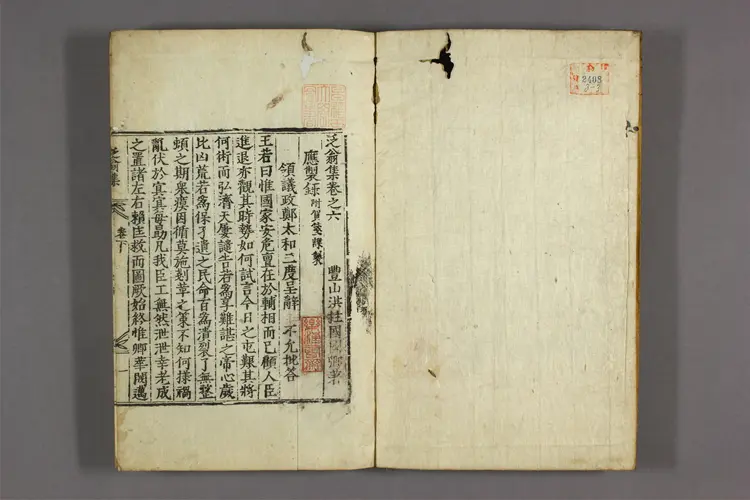 泛翁集卷之六
豐山洪柱國國卿著
應製錄 附賀箋課製
領議政鄭太和二度呈辭 不允批答
王若曰惟國家安危亶在於輔相而已顧人臣
進退亦觀其時勢如何試言今日之屯艱其將
何術而弘濟天屢譴告若爲享難諶之帝心歲
比凶荒若爲保孑遺之民命百爲潰裂了無整
頓之期衆瘼因循莫施剗革之策不知何㨾禍
亂伏於冥冥毋曰凡我臣工無然泄泄幸老成
之置諸左右賴匡救而圖厥始終惟卿華閥邁
泛翁集
卷下
2468